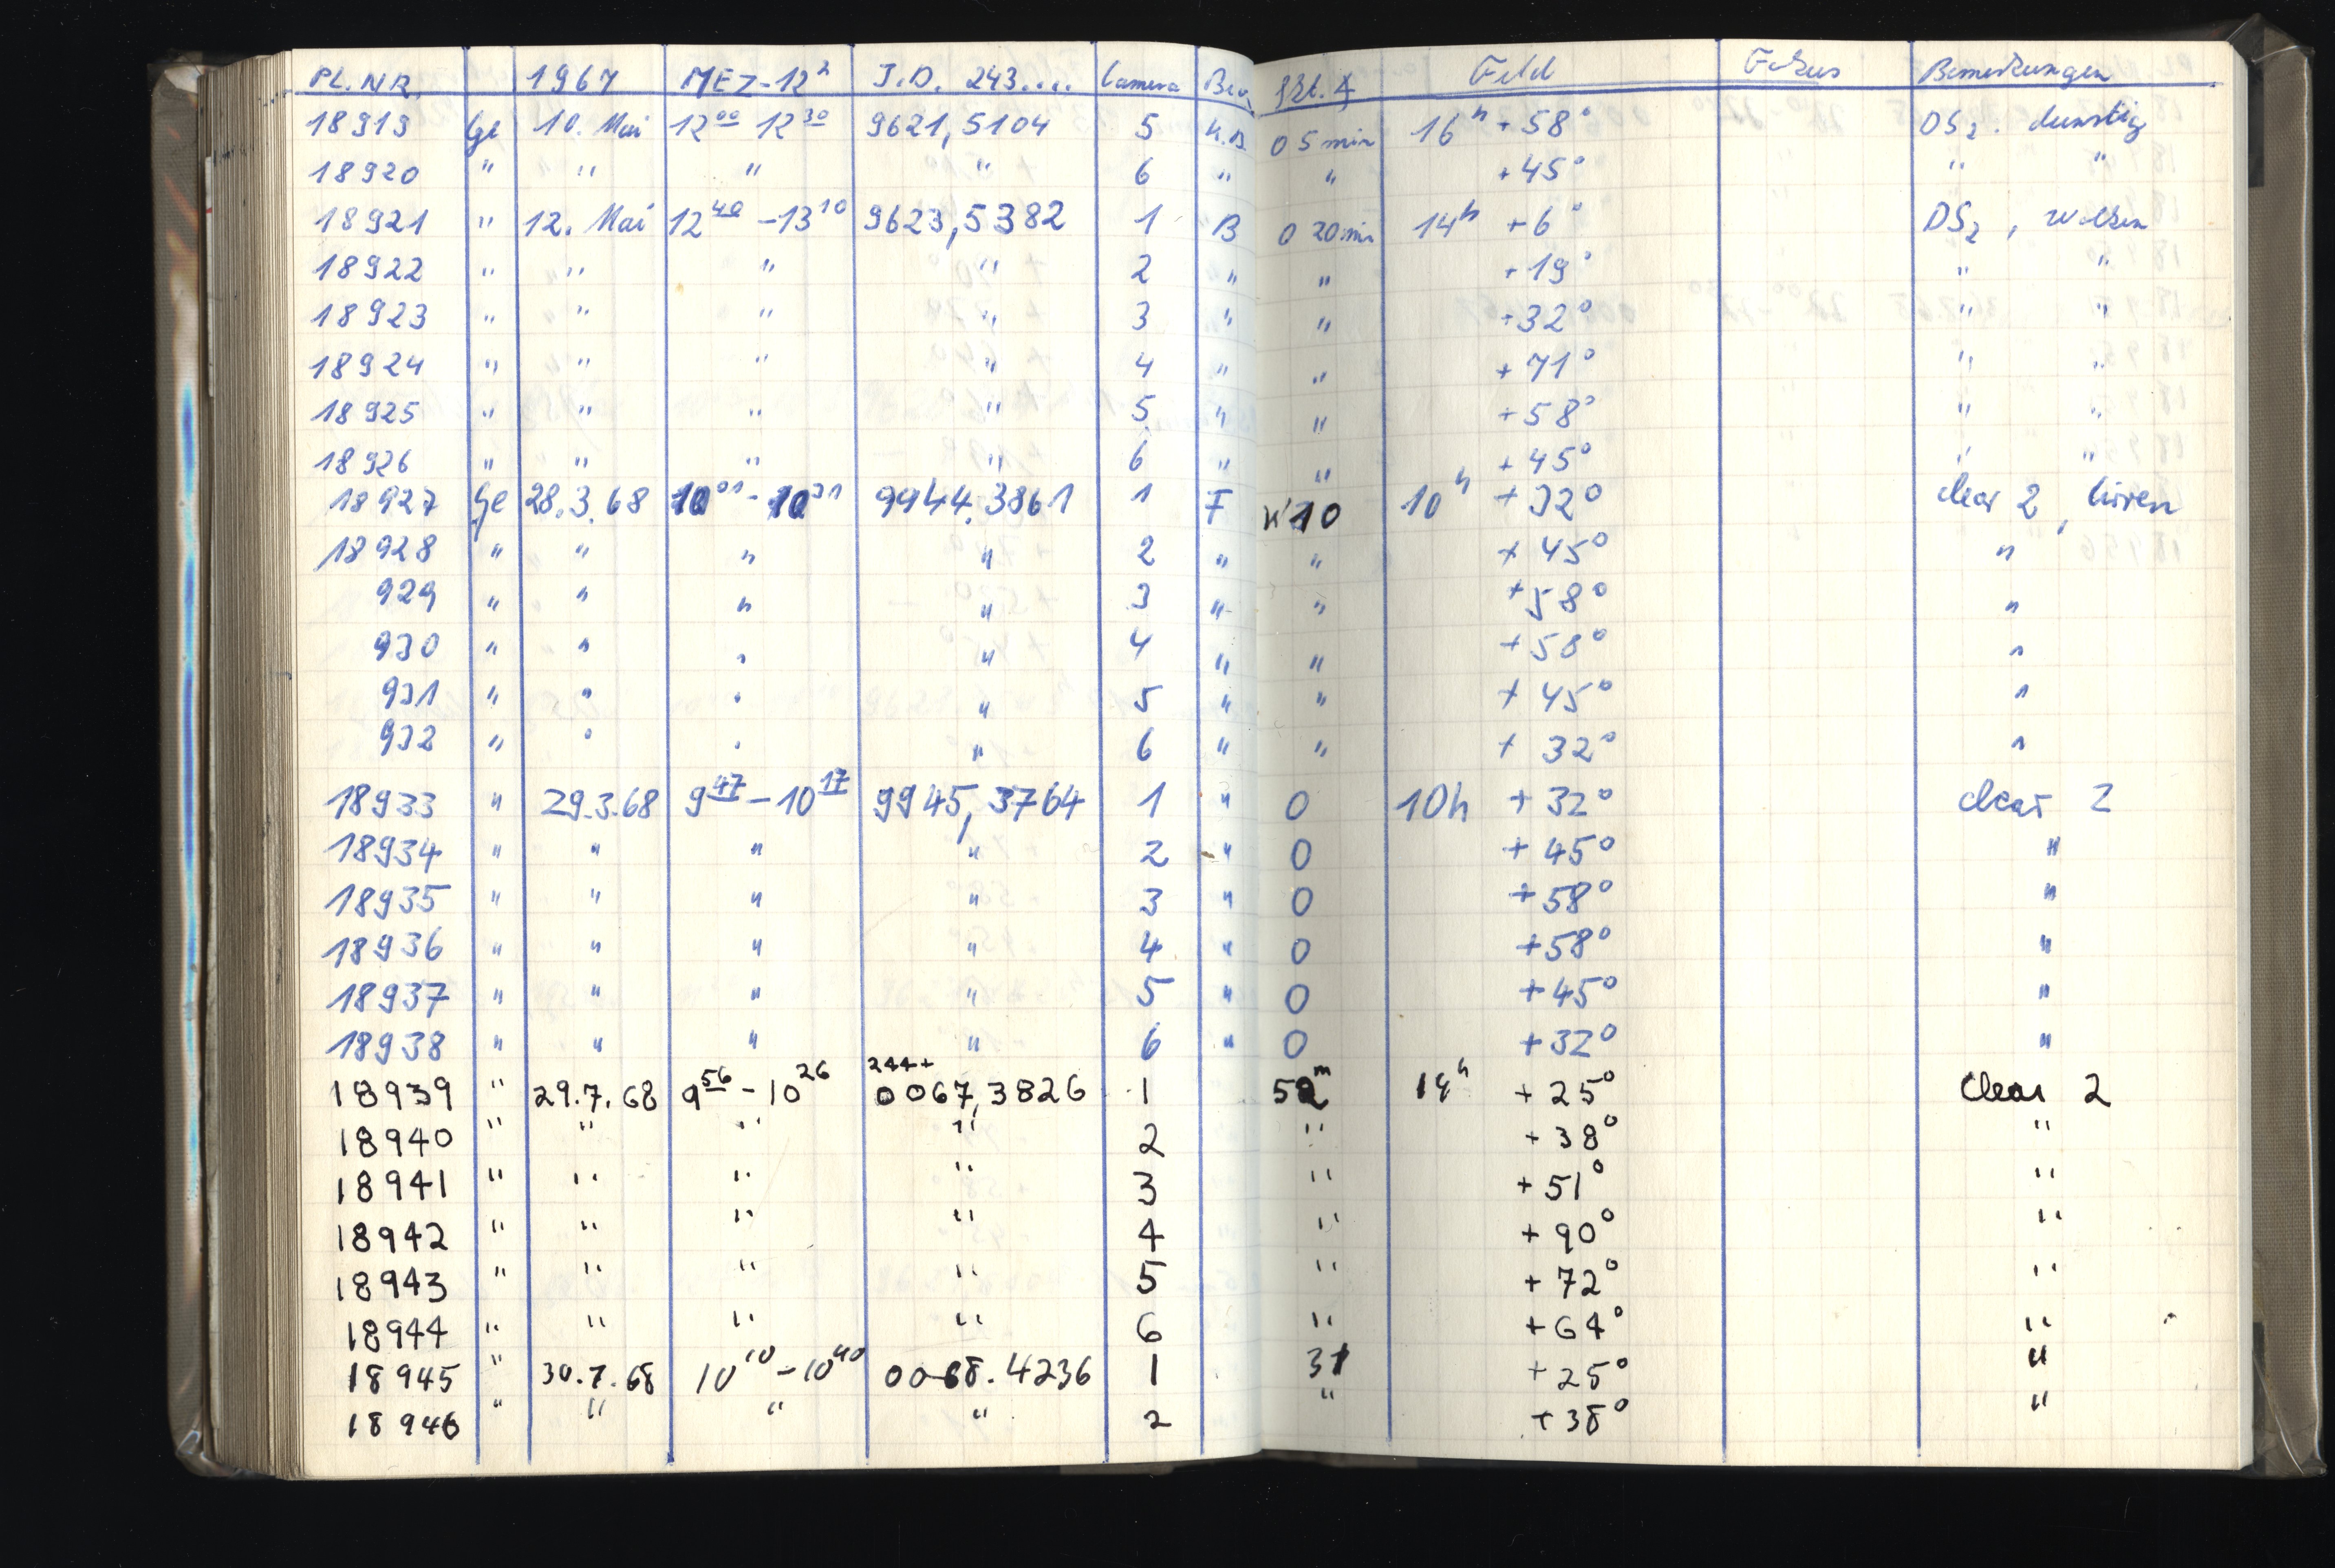 PL. NR. 1967 MEZ-12h J.D. 243.... Camera Beo. Feld Fokus Bemerkungen
18919 Ge 10. Mai 12 00 12 30 9621,5104 5 0 5 min 16 h + 58° DS2. dunstig
18920 " " " " 6 " " +45° " "
18921 " 12. Mai 12 40 - 13 10 9623,5382 1 B 0 20 min 14 h +6° DS2, Wolken
18922 " " " " 2 " " +19° " "
18923 " " " " 3 " " +32° " "
18924 " " " " 4 " " +71° " "
18925 " " " " 5 " " +58° " "
18926 " " " " 6 " " +45° " "
18927 Ge 28.3.68 10 01 - 10 31 9944.3861 1 F W10 10 h +32° clear 2, Cirren
18928 " " " " 2 " " +45° "
929 " " " " 3 " " +58° "
930 " " " " 4 " " +58° "
931 " " " " 5 " " +45° "
932 " " " " 6 " " +32° "
18933 " 29.3.68 9 47 - 10 17 9945,3764 1 " 0 10h +32° clear 2
18934 " " " " 2 " 0 +45° "
18935 " " " " 3 " 0 +58° "
18936 " " " " 4 " 0 +58° "
18937 " " " " 5 " 0 +45° "
18938 " " " " 6 " 0 +32° "
244+
18939 " 29.7.68 9 56 - 10 26 0067,3826 1 52 m 19 h +25° Clear 2
18940 " " " " 2 " +38° "
18941 " " " " 3 " +51° "
18942 " " " " 4 " +90° "
18943 " " " " 5 " +72° "
18944 " " " " 6 " +64° "
18945 " 30.7.68 10 10 - 10 40 0068.4236 1 31 +25° "
18946 " " " " 2 " +38° "